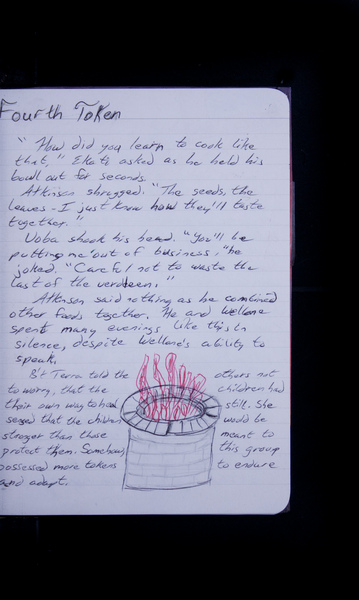 Fourth Token
"How did you learn to cook like
that," Ekats asked as he held his
bowl out for seconds.
Atkinson shrugged. "The seeds, the
leaves - I just know how they'll taste
together."
Uoba shook his head. "You'll be
putting me out of business," he
joked. "Careful not to waste the
last of the verdeen."
Atkinson said nothing as he combined
other foods together. He and Wellone
spent many evenings like this in
silence, despite Wellone's ability to
speak.
But Terra told the others not
to worry, that the children had
their own way to heal still. She
sensed that the children would be
stronger than those meant to
protect them. Somehow, this group
possessed more tokens to endure
and adapt.